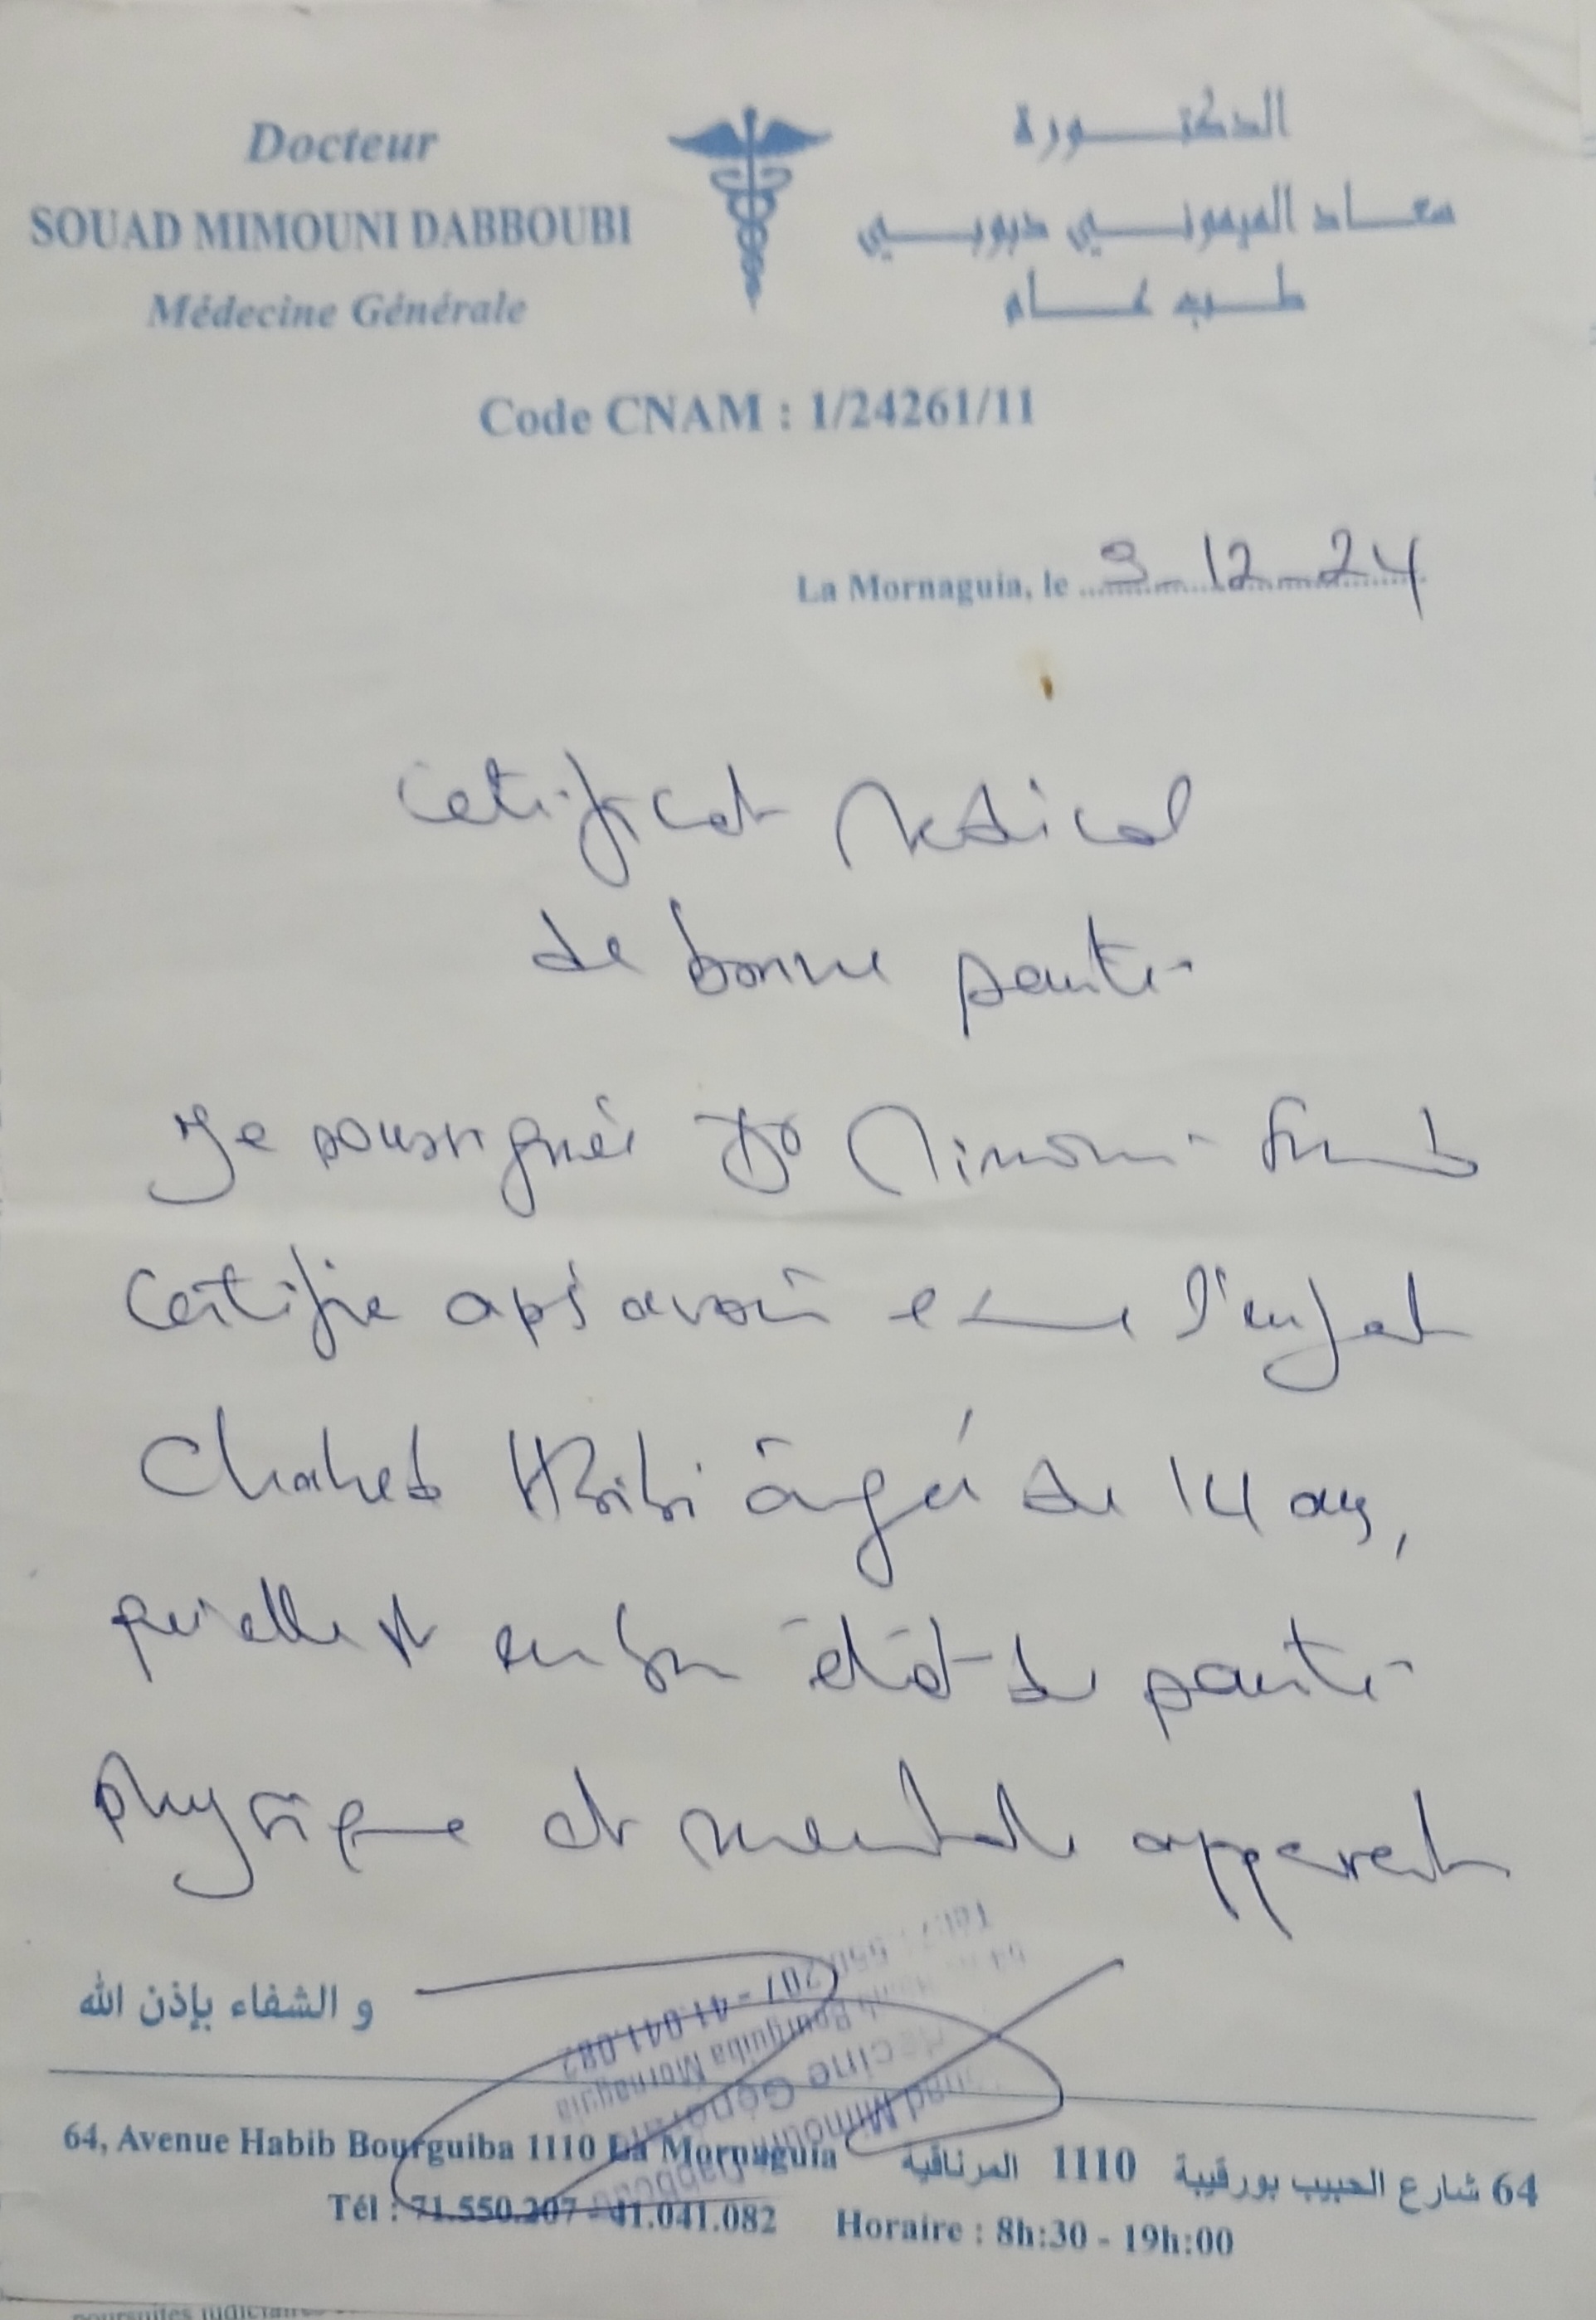 Docteur
SOUAD MIMOUNI DABBOUBI
Médecine Générale
الدكتورة
سعاد الميموني دبوبي
طب عام
Code CNAM : 1/24261/11
La Mornaguia, le 9-12-24
Certificat Médical
de bonne santé
Je soussignée Dr Mimouni Souad
Certifie après avoir examiné l'enfant
Chahed Hbibi âgée de 14 ans,
qu'elle est en bon état de santé
physique et mentale apparent
و الشفاء بإذن الله
Médecine Générale
Bourguiba Mornaguia
207 - 41.041.082
64, Avenue Habib Bourguiba 1110 La Mornaguia
64 شارع الحبيب بورقيبة 1110 المرناقية
Tél : 71.550.207 - 41.041.082 Horaire : 8h:30 - 19h:00
poursuites judiciaires